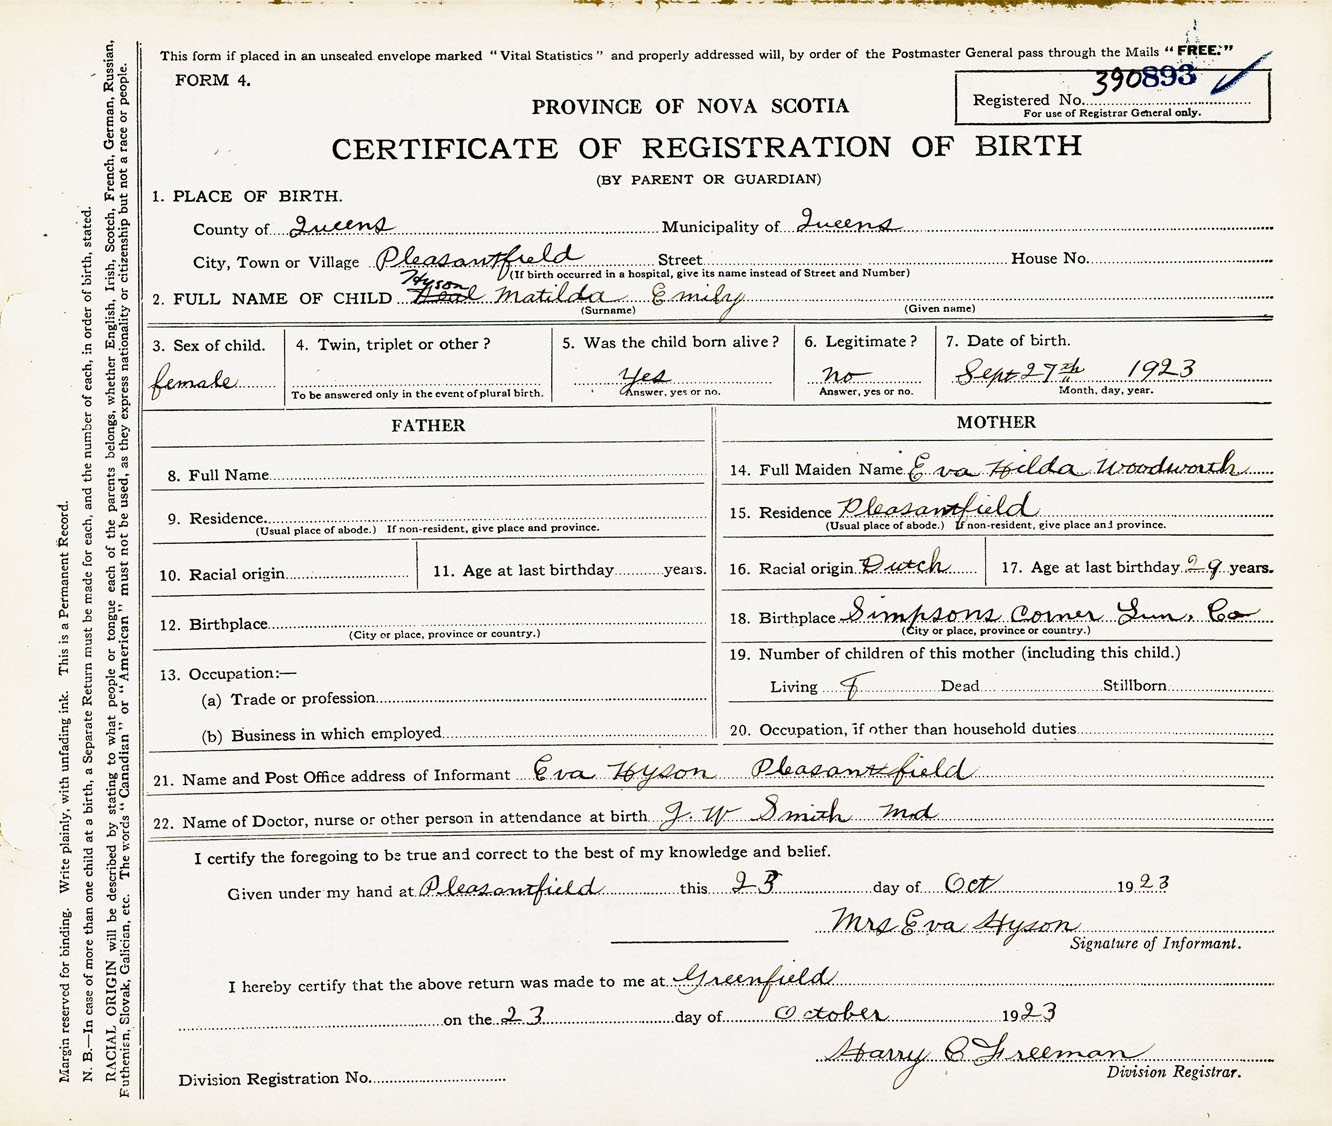 This form if placed in an unsealed envelope marked "Vital Statistics" and properly addressed will, by order of the Postmaster General pass through the Mails "FREE."
FORM 4.
390893
Registered No.
For use of Registrar General only.
PROVINCE OF NOVA SCOTIA
CERTIFICATE OF REGISTRATION OF BIRTH
(BY PARENT OR GUARDIAN)
1. PLACE OF BIRTH.
County of Queens Municipality of Queens
City, Town or Village Pleasantfield Street House No.
(If birth occurred in a hospital, give its name instead of Street and Number)
Hyson
2. FULL NAME OF CHILD Matilda Emily
(Surname) (Given name)
3. Sex of child. 4. Twin, triplet or other? 5. Was the child born alive? 6. Legitimate? 7. Date of birth.
female Yes no Sept 27th 1923
To be answered only in the event of plural birth. Answer, yes or no. Answer, yes or no. Month, day, year.
FATHER
8. Full Name
9. Residence
(Usual place of abode.) If non-resident, give place and province.
10. Racial origin 11. Age at last birthday years.
12. Birthplace
(City or place, province or country.)
13. Occupation:—
(a) Trade or profession
(b) Business in which employed
MOTHER
14. Full Maiden Name Eva Hilda Woodworth
15. Residence Pleasantfield
(Usual place of abode.) If non-resident, give place and province.
16. Racial origin Dutch 17. Age at last birthday 29 years.
18. Birthplace Simpsons Corner Lun. Co
(City or place, province or country.)
19. Number of children of this mother (including this child.)
Living 8 Dead Stillborn
20. Occupation, if other than household duties
21. Name and Post Office address of Informant Eva Hyson Pleasantfield
22. Name of Doctor, nurse or other person in attendance at birth J. W Smith Md
I certify the foregoing to be true and correct to the best of my knowledge and belief.
Given under my hand at Pleasantfield this 23 day of Oct 1923
Mrs Eva Hyson
Signature of Informant.
I hereby certify that the above return was made to me at Greenfield
on the 23 day of October 1923
Harry C Freeman
Division Registrar.
Division Registration No.
Margin reserved for binding. Write plainly, with unfading ink. This is a Permanent Record.
N. B.—In case of more than one child at a birth, a Separate Return must be made for each, and the number of each, in order of birth, stated.
RACIAL ORIGIN will be described by stating to what people or tongue each of the parents belongs, whether English, Irish, Scotch, French, German, Russian,
Ruthenian, Slovak, Galician, etc. The words "Canadian" or "American" must not be used, as they express nationality or citizenship but not a race or people.